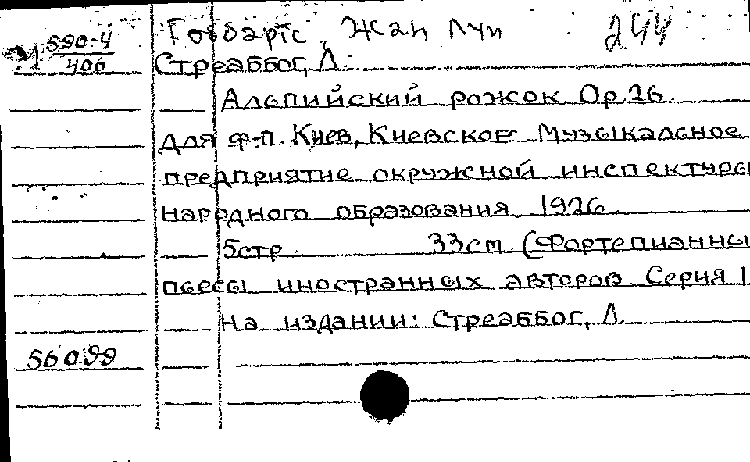 Говбартс, Жан Луи 244
590-4
406
Стреаббог, Л.
Альпийский рожок Op. 26
для ф-п. Киев, Киевское Музыкальное
предприятие окружной инспектуры
народного образования 1926
5стр 33см (Фортепианны
пьесы иностранных авторов Серия 1
На издании: Стреаббог, Л.
56099